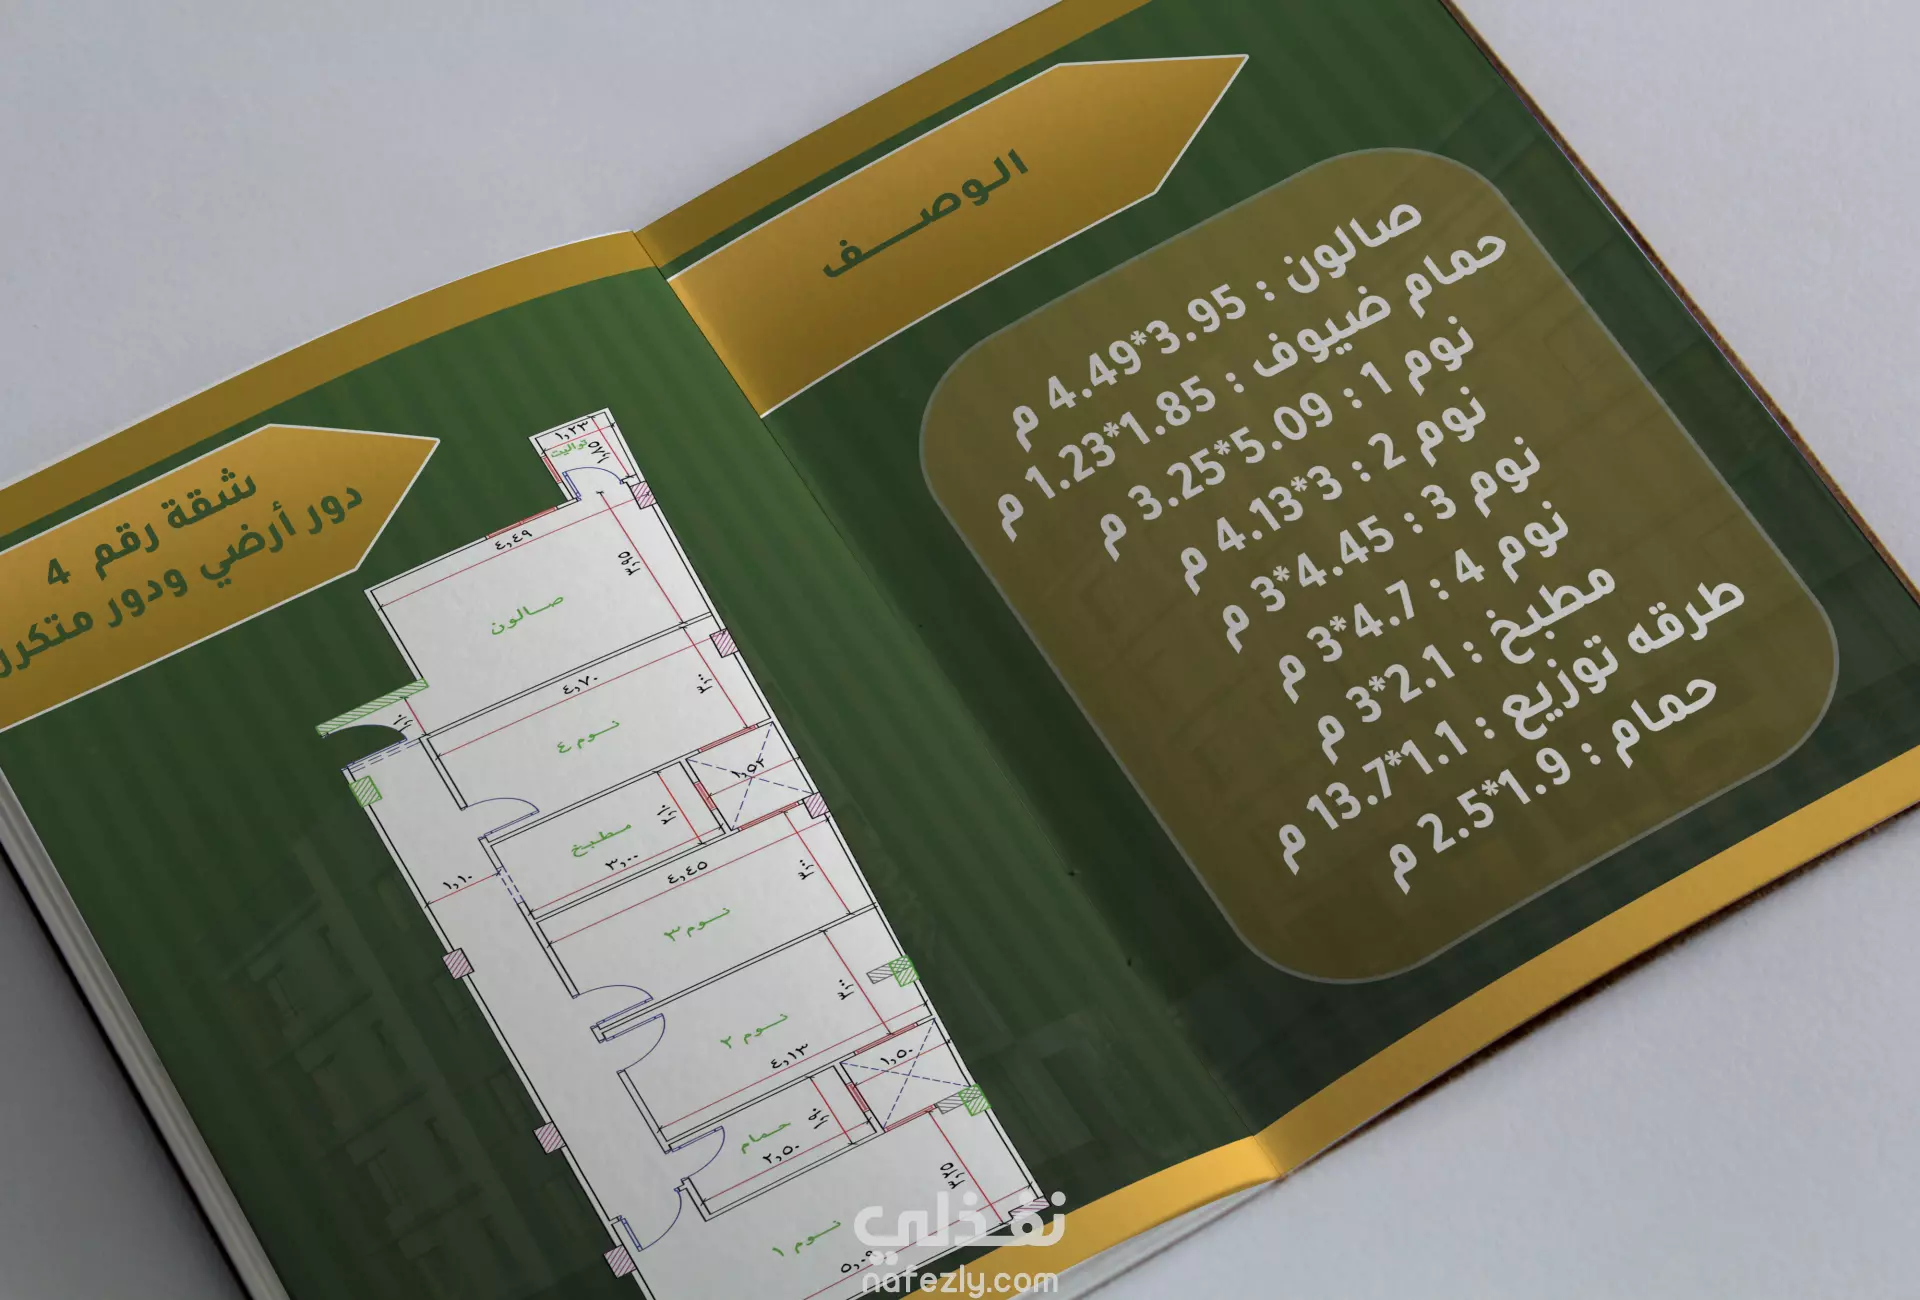 الوصف
صالون : 3.95*4.49 م
حمام ضيوف : 1.85*1.23 م
نوم 1 : 5.09*3.25 م
نوم 2 : 3*4.13 م
نوم 3 : 4.45*3 م
نوم 4 : 4.7*3 م
مطبخ : 2.1*3 م
طرقه توزيع : 1.1*13.7 م
حمام : 1.9*2.5 م
شقة رقم 4
دور أرضي ودور متكرر
١,٢٣
تواليت
١,٨٥
٤,٤٩
٣,٩٥
صالون
٤,٧٠
٣,٠٠
نوم ٤
١,٥٢
٢,١٠
مطبخ
٣,٠٠
١,١٠
٤,٤٥
٣,٠٠
نوم ٣
٣,٠٠
نوم ٢
٤,١٣
١,٥٠
١,٩٠
حمام
٢,٥٠
٣,٢٥
نوم ١
٥,٠٩
نفذلي
nafezly.com